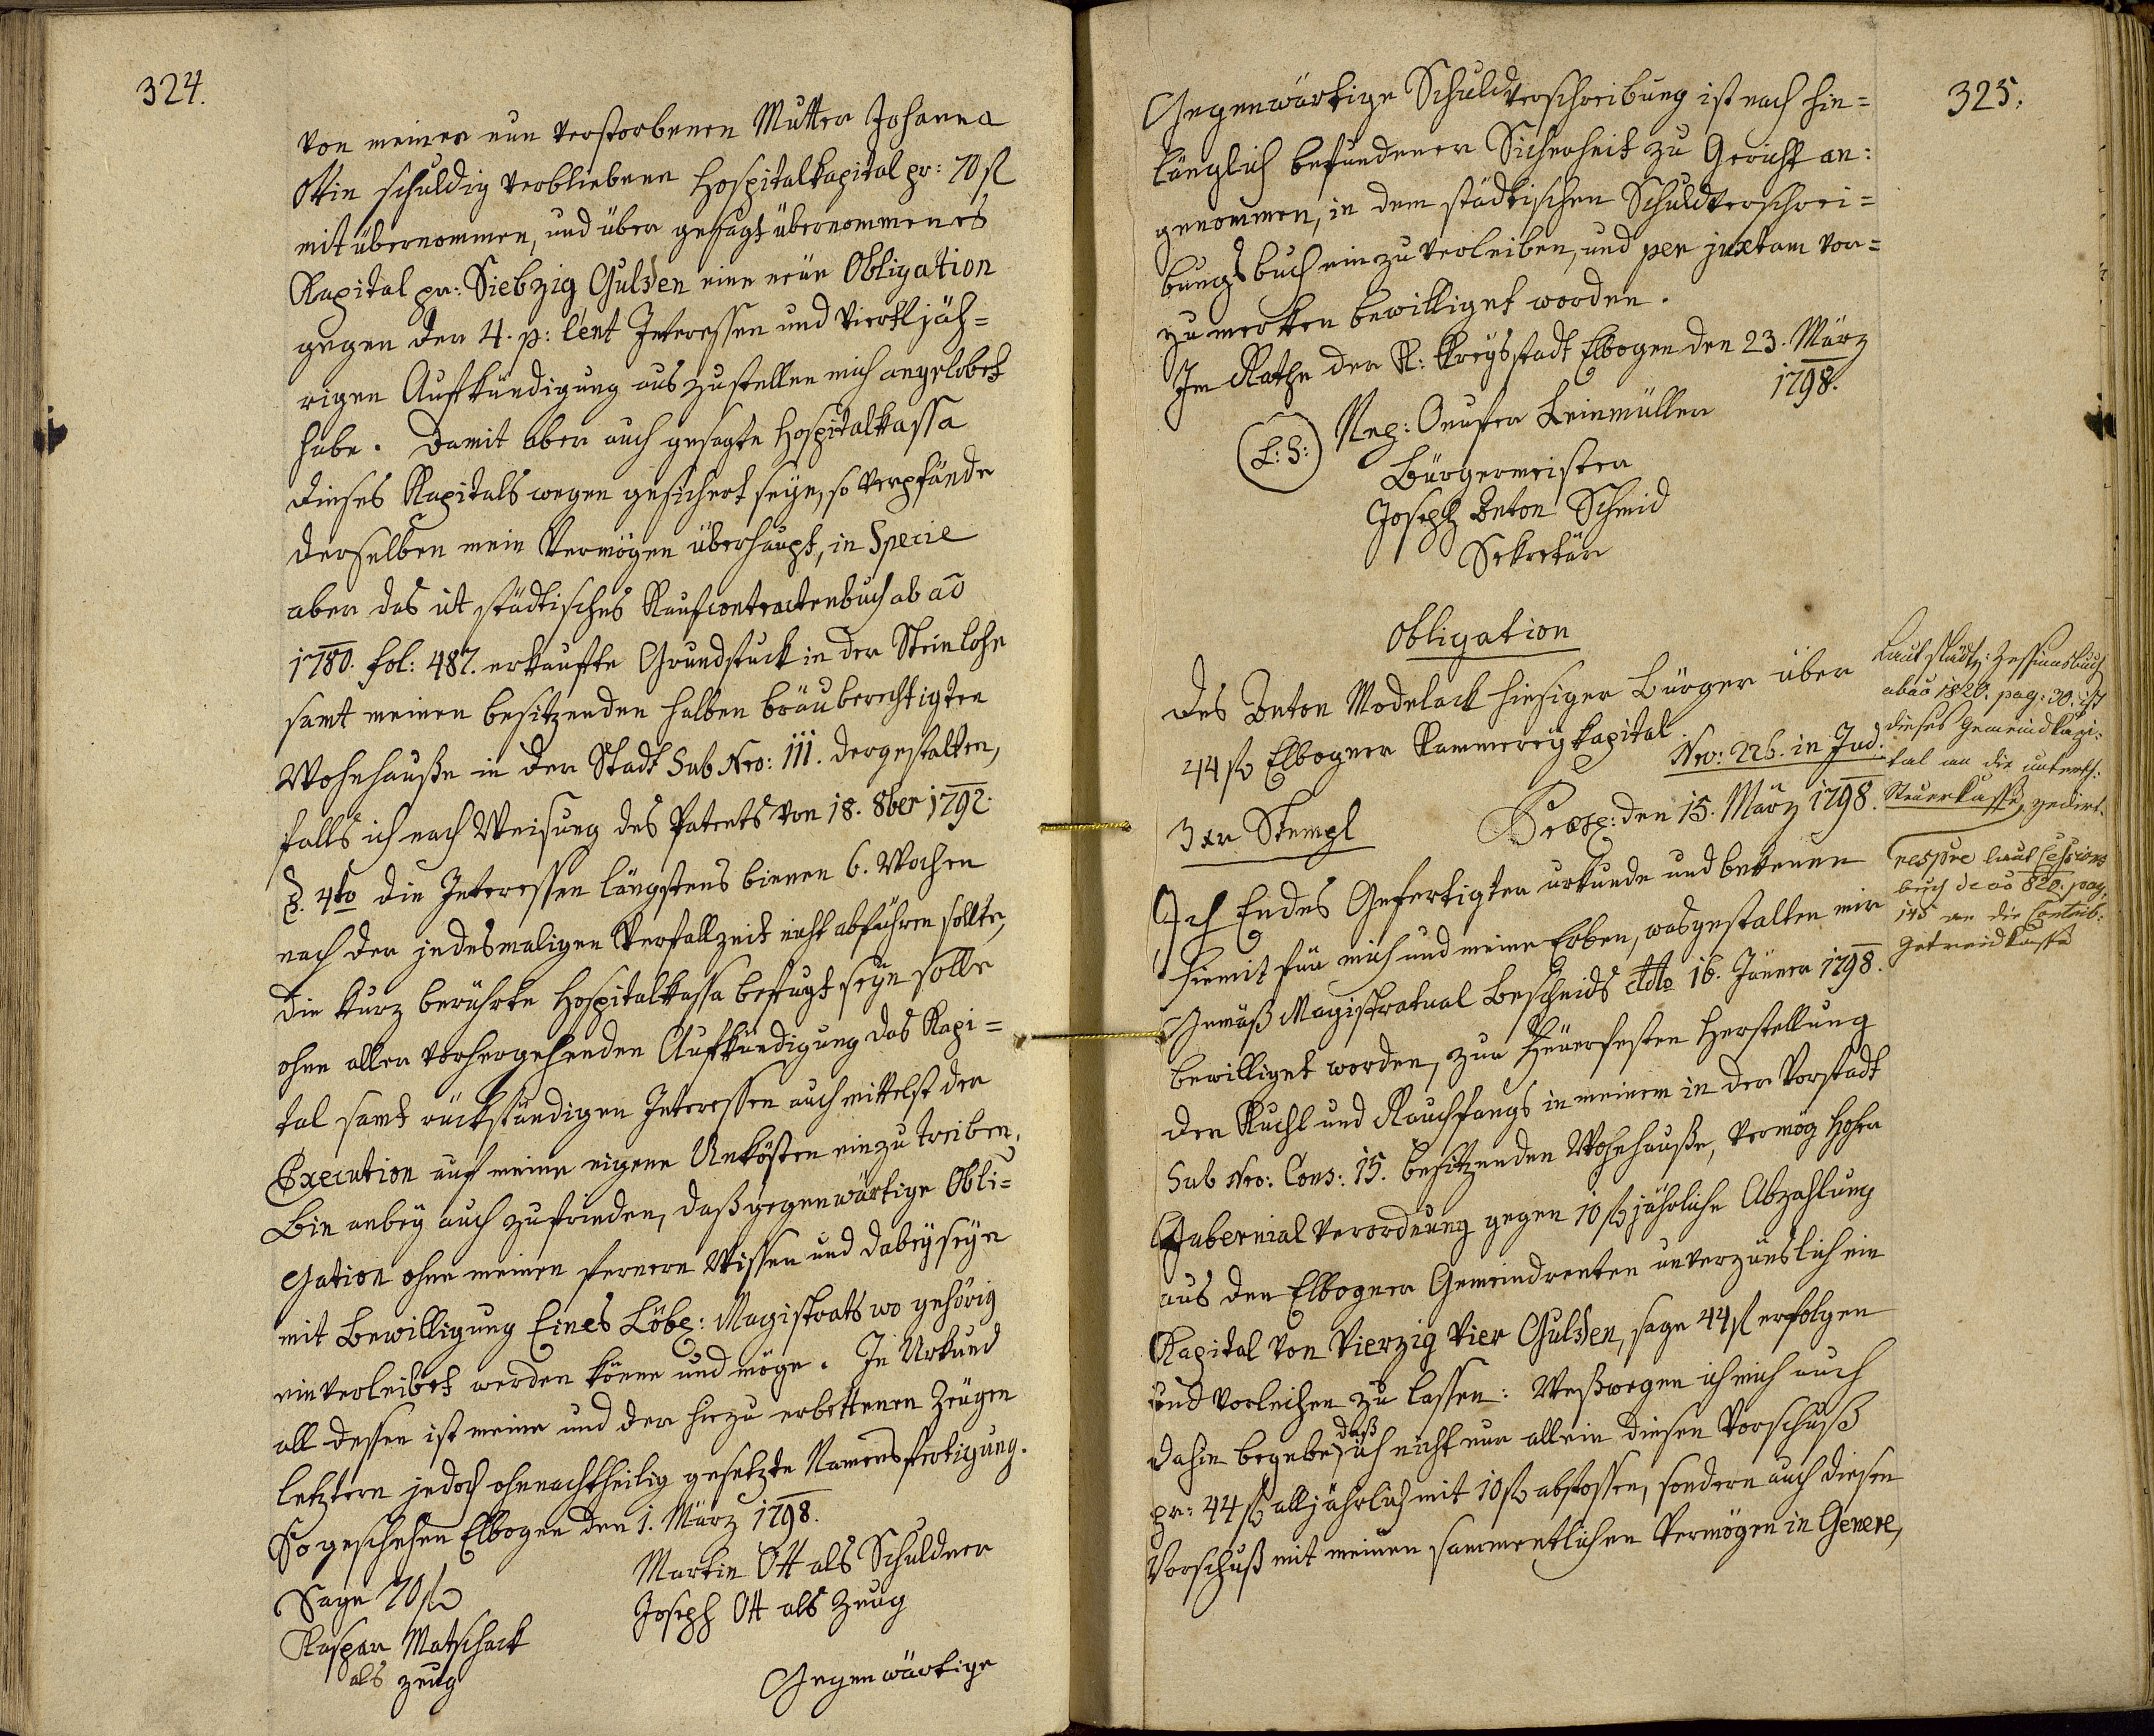 324.
von meiner nun verstorbenen Mutter Johanna
Ottin schuldig verbliebene Hospitalkapital pr: 70 fl
mit übernommen, und über gesagt übernommenes
Kapital pr: Siebzig Gulden eine neüe Obligation
gegen der 4. p: Cent Interessen und viertljäh=
rigen Aufkündigung auszustellen mich angelobet
habe. Damit aber auch gesagte Hospitalkassa
dieses Kapitals wegen gesichert seÿe, so verpfände
derselben mein Vermögen überhaupt, in Specie
aber das ut städtisches Kaufcontractenbuch ab ao
1780. fol: 487. erkaufte Grundstuck in der Steinlohe
samt meinen besitzenden halben bräuberechtigten
Wohnhauße in der Stadt Sub Nro: 111. dergestalten,
falls ich nach Weisung des Patents von 18. 8ber 1792.
§. 4to die Interessen längstens binnen 6. Wochen
nach der jedesmaligen Verfallzeit nicht abführen sollte,
die kurz berührte Hospitalkassa befugt seÿn solle
ohne aller vorhergehenden Aufkündigung das Kapi=
tal samt rückständigen Interessen auch mittelst der
Execution auf meine eigene Unkösten einzutreiben,
Bin anbeÿ auch zufrieden, daß gegenwärtige Obli=
gation ohne meinen fernern Wissen und dabeÿseÿn
mit Bewilligung Eines Löbl: Magistrats wo gehörig
einverleibet werden könne und möge. In Urkund
all dessen ist meine und der hiezu erbettenen Zeügen
letztern jedoch ohnnachtheilig gesetzte Namensfertigung.
So geschehen Elbogen den 1. März 1798.
Sage 70 fl
Martin Ott als Schuldner
Kaspar Matschack
als Zeug
Joseph Ott als Zeug
Gegenwärtige
325.
Gegenwärtige Schuldverschreibung ist nach hin=
länglich befundener Sicherheit zu Gericht an:
genommen, in dem städtischen Schuldverschrei=
bungsbuch einzuverleiben, und per juxtam vor=
zumerken bewilliget worden.
Im Rathe der K: Kreÿsstadt Elbogen den 23. März
1798.
L: S:
Onufer Leinmüller
Bürgermeister
Joseph Anton Schmid
Sekretär
Obligation
des Anton Modelack hiesiger Bürger über
44 fl Elbogner Kammereÿkapital.
Nro: 226. in Jud.
3 xr Stempl
Præs: den 15. März 1798.
Ich Endes Gefertigter urkunde und bekenne
hiemit für mich und meine Erben, wasgestalten mir
Gemäß Magistratual Bescheids ddto 16. Jänner 1798.
bewilliget worden, zur Feüerfesten Herstellung
der Kuchl und Rauchfangs in meinem in der Vorstadt
Sub Nro: Cons: 15. besitzenden Wohnhauße, vermög Hoher
Gubernial Verordnung gegen 10 fl jährliche Abzahlung
aus den Elbogner Gemeindrenten unverzünslich ein
Kapital von Vierzig Vier Gulden, sage 44 fl erfolgen
und vorleihen zu lassen: Weßwegen ich mich auch
dahin begebe, daß ich nicht nur allein diesen Vorschuß
pr: 44 fl alljährlich mit 10 fl abstossen, sondern auch diesen
Vorschuß mit meinen sammentlichen Vermögen in Genere,
Laut städt: Zessionsbuch
ab ao 1820. pag: 30. ist
dieses Gemeindkapi:
tal an die unterth:
Steuerkasse zedirt.
respve laut Cessions
buch de ao 820. pag.
145 an die Contrib:
Getreidkasse